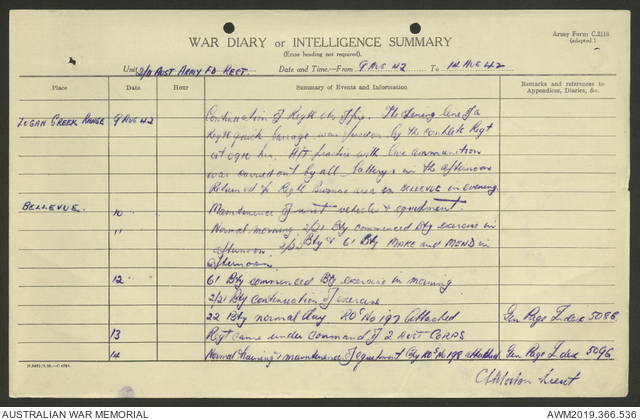 Army Form C.2118
(adapted.)
WAR DIARY or INTELLIGENCE SUMMARY
(Erase heading not required).
Unit 2/11 AUST ARMY FD REGT. Date and Time—From 9 AUG 42 To 14 AUG 42
Place Date Hour Summary of Events and Information Remarks and references to Appendices, Diaries, &c.
LOGAN CREEK RANGE 9 AUG 42 Continuation of Regtl The opening line of a
Regtl quick barrage was fired on by the complete Regt
at hrs. A/T practice with live ammunition
was carried out by all batterys in the afternoon
Returned to Regtl area on BELLEVUE in evening.
BELLEVUE. 10 Maintenance of unit vehicles & equipment.
11 Normal morning 2/21 Bty commenced Bty exercise in
afternoon 2/22 Bty & 61 Bty MAKE and MEND in
afternoon.
12 61 Bty commenced Bty exercise in morning
2/21 Bty continuation of exercise
22 Bty normal day. RO's No 197 Attached Gen Page Index 5086
13 Regt came under command of 2 AUST CORPS
14 Normal training & maintenance of equipment RO's No 198 attached Gen Page Index 5096
Lieut
AUSTRALIAN WAR MEMORIAL
AWM2019.366.536